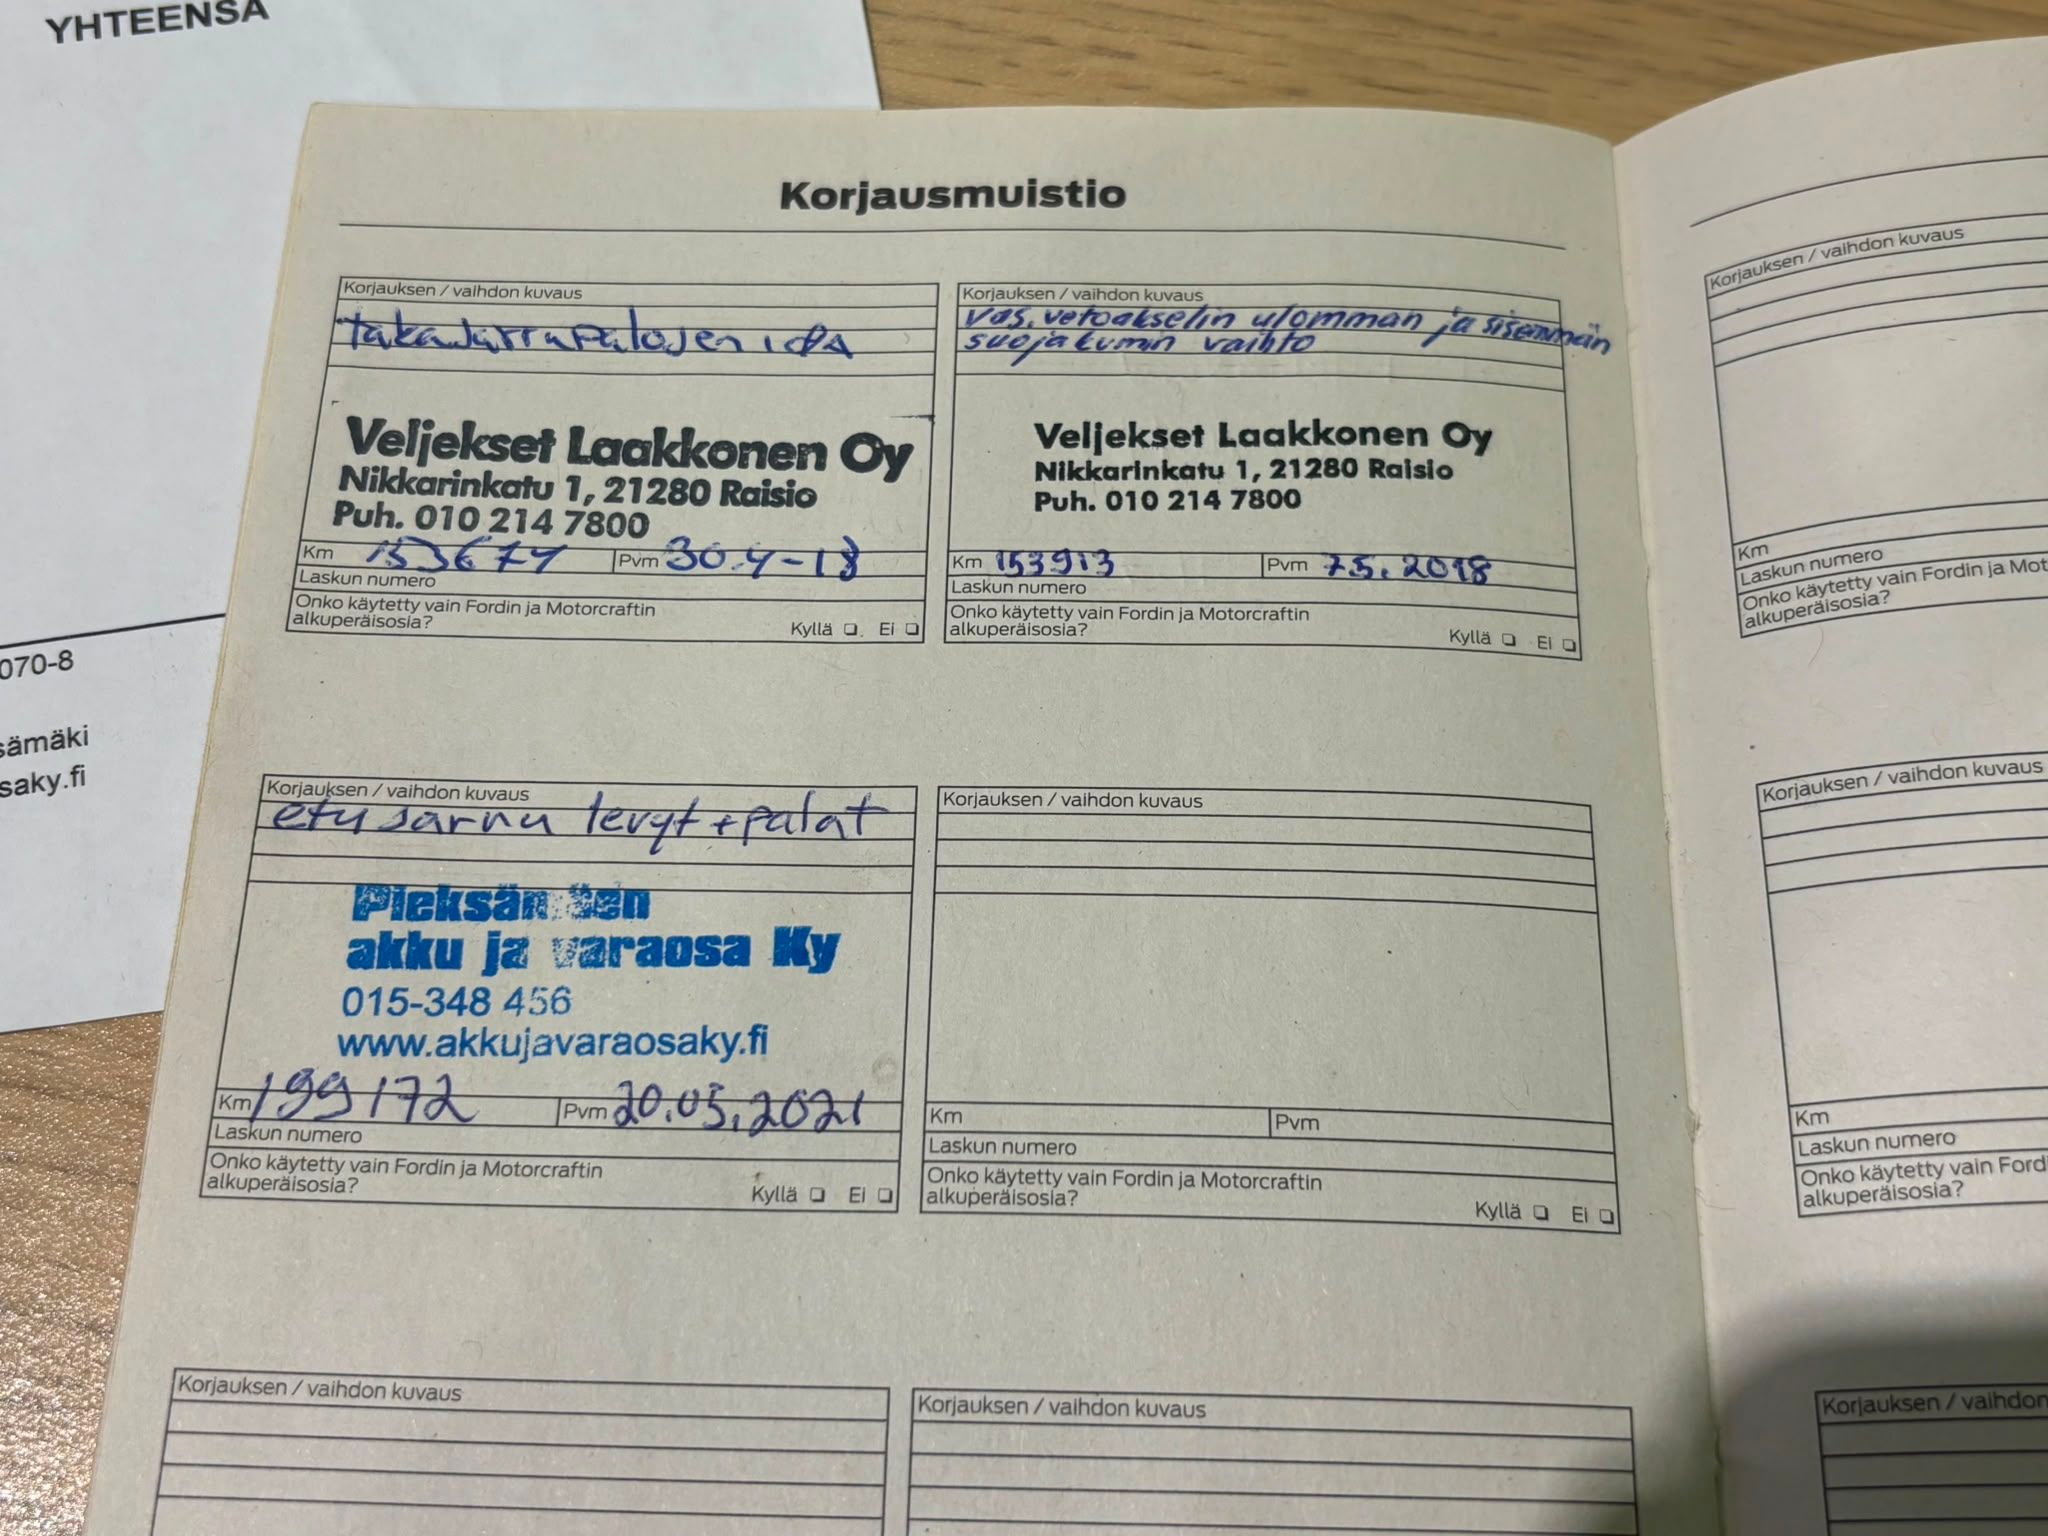 YHTEENSÄ
070-8
sämäki
saky.fi
Korjausmuistio
Korjauksen / vaihdon kuvaus
takajarrupalojen
Veljekset Laakkonen Oy
Nikkarinkatu 1, 21280 Raisio
Puh. 010 214 7800
Km 153674 Pvm 30.4-18
Laskun numero
Onko käytetty vain Fordin ja Motorcraftin
alkuperäisosia? Kyllä Ei
Korjauksen / vaihdon kuvaus
vas. vetoakselin ulomman ja sisemmän
suojakumin vaihto
Veljekset Laakkonen Oy
Nikkarinkatu 1, 21280 Raisio
Puh. 010 214 7800
Km 153913 Pvm 7.5.2018
Laskun numero
Onko käytetty vain Fordin ja Motorcraftin
alkuperäisosia? Kyllä Ei
Korjauksen / vaihdon kuvaus
etu jarru levyt + palat
Pieksämäen
akku ja varaosa Ky
015-348 456
www.akkujavaraosaky.fi
Km 199172 Pvm 20.05.2021
Laskun numero
Onko käytetty vain Fordin ja Motorcraftin
alkuperäisosia? Kyllä Ei
Korjauksen / vaihdon kuvaus
Km Pvm
Laskun numero
Onko käytetty vain Fordin ja Motorcraftin
alkuperäisosia? Kyllä Ei
Korjauksen / vaihdon kuvaus
Korjauksen / vaihdon kuvaus
Korjauksen / vaihdon kuvaus
Km
Laskun numero
Onko käytetty vain Fordin ja Mot
alkuperäisosia?
Korjauksen / vaihdon kuvaus
Km
Laskun numero
Onko käytetty vain Ford
alkuperäisosia?
Korjauksen / vaihdon